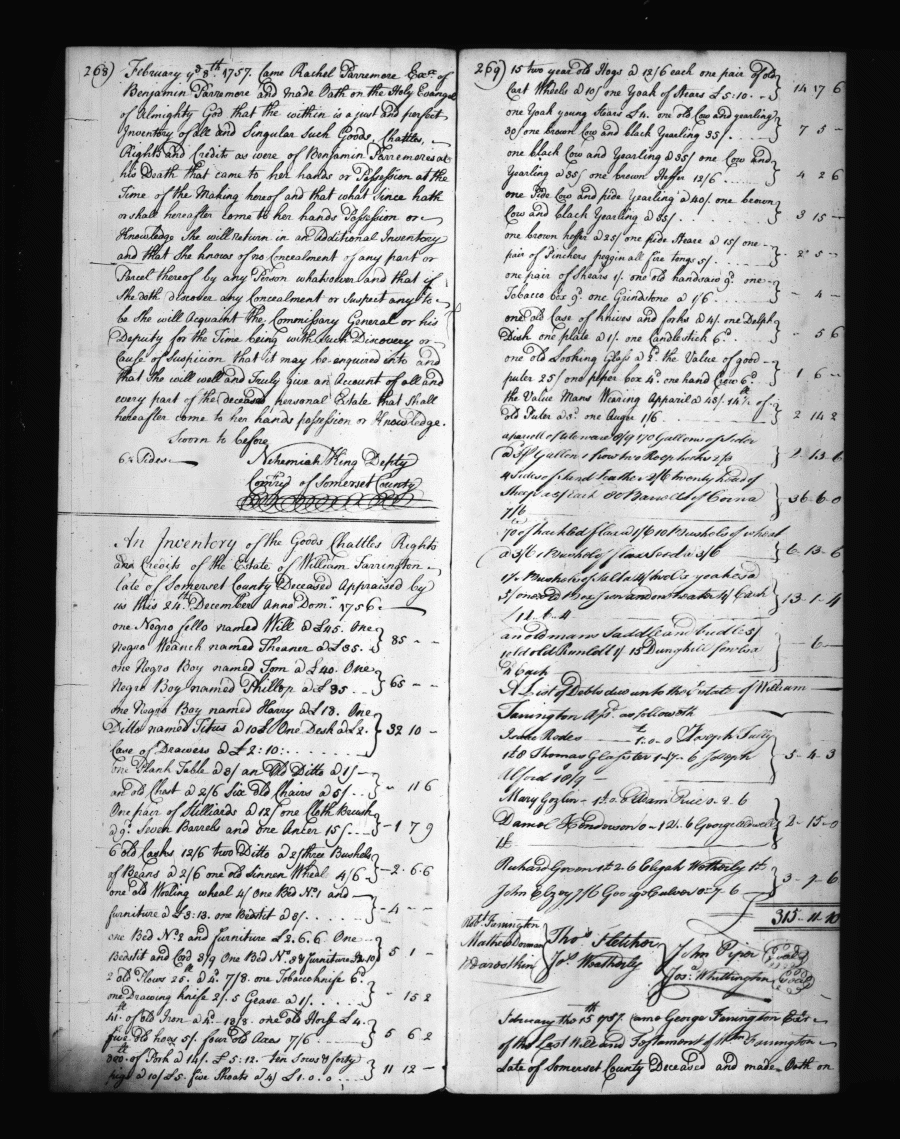 268) February ye 8th. 1757. Came Rachel Parremore Exx. of
Benjamin Parremore and made Oath on the Holy Evangel
of Almighty God that the within is a just and perfect
Inventory of all and Singular Such Goods, Chattles,
Rights and Credits as were of Benjamin Parremores at
his Death that came to her hands or Possession at the
Time of the Making hereof and that what Since hath
or shall hereafter come to her hands Possession or
Knowledge She will return in an Additional Inventory
and that She knows of no Concealment of any part or
Parcel thereof by any Person whatsoever and that if
She doth discover any Concealment or Suspect any to
be She will Acquaint the Commissary General or his
Deputy for the Time being with Such Discovery or
Cause of Suspicion that it may be enquired into and
that She will well and Truly give an Account of all and
every part of the deceased personal Estate that Shall
hereafter come to her hands possession or Knowledge.
Sworn to before
6 Sides. Nehemiah King Depty
Comry of Somerset County
An Inventory of the Goods Chattles Rights
and Credits of the Estate of William Farrington
late of Somerset County Deceased Appraised by
us this 24th. December Anno Dom. 1756.
one Negro fello named Will a £45. One
Negro Weanch named Theaner a £35. } 85 - -
one Negro Boy named Tom a £40. One
Negro Boy named Phillop a £35 } 65 - -
one Negro Boy named Harry a £18. One
Ditto named Titus a 10£ One Desk a £2. } 32 10 -
Case of Drawers a £2:10:
one Plank Table a 3/ an Old Ditto a 1/
an old Chast a 2/6 Six old Chairs a 5/ } " 11 6
One pair of Stilliards a 12/ one Cloth Brush
a 9d. Seven Barrels and one Anker 15/ } - 1 7 9
6 old Casks 12/6 two Ditto a 2/ three Bushels
of Beans a 2/6 one old Linnen Wheal 4/6 } - 2 . 6 . 6
one old Wooling wheal 4/ One Bed No. 1 and
furniture a £3:13. one Bedstit a 3/ } - 4 - -
one Bed No. 2 and furniture £2.6.6 One
Bedstit and Cord 3/9 One Bed No. 3 & furniture } 5 1 -
2 old Plows 25th. a 4d. 7/8. one Tobaccoknife 6d.
one Drawing knife 2/. 5 Gease a 1/ } " 15 2
41th. of old Iron a 4d. 13/8. one old Horse £4.
five old hoes 5/. four old Axes 7/6 } 5 6 2
of Pork a 14/. £5:12. ten Sows & forty
pigs a 10/ £5. five Shoats a 4/ £1.0.0 } 11 12 -
269) 15 two year old Hogs a 12/6 each one pair of old
Cart Wheels a 10/ one Yoak of Stears £5:10. } 14 17 6
one Yoak young Stears £4. one old Cow and yearling
30/ one brown Cow and black Yearling 35/ } 7 5 -
one black Cow and Yearling a 35/ one Cow and
Yearling a 35/ one brown Heffer 12/6 } 4 2 6
one Pide Cow and pide Yearling a 40/. one brown
Cow and black Yearling a 35/. } 3 15 -
one brown heffer a 25/ one pide Steare a 15/ one
pair of Pinchers fire tongs 5/. } 2 5 -
one pair of Shears 1/. one old handsaw 9d. one
Tobacco box 9d. one Grindstone a 1/6 } - 4 -
one old Case of knives and forks a 4/. one Delph
Dish one plate a 1/. one Candlestick 6d. } 5 6
one old Looking Glass a 2d. the Value of good
puter 25/ one peper box 4d. one hand Crow 6d. } 1 6 -
the Value Mans Wearing Apparil a 45/. 14th. of
old Puter a 8d. one Auger 1/6 } 2 14 2
a parcell of tite ware 8/9 170 Gallons of Sider
Gallon 1 frow two Reap hooks 2/3 } 2 13 6
4 Sides of hard Leather 2/6 twenty head of
Sheep a 5/ Each 80 Barrells of Corn a } 36 6 0
7/6
70 of hackled flax a 1/6 10 Bushels of wheat
a 3/6 1 Bushel of flax Seed a 3/6 } 6 13 6
Bushels of Salt a 4/
3/ one Each } 13 1 4
an old mans Saddle and bridle 5/
1 old old Rundlett 1/ 15 Dunghill fowls a } 6 -
Each
A List of Debts due unto the Estate of William
Farrington as followeth
Rodes 1:0-0 Joseph
Thomas 1-17-6 Joseph } 5 - 4 - 3
Alford 18/9
Mary Goslin Adam Price 0-2-6
Henderson 0-12-6 George } 2 - 15 - 0
Richard Green 1 2 6 Elijah Wetherly
John Elzey 7/6 George 0-7-6 } 3 - 7 - 6
315 - 11 - 10
Robt. Farrington
Mathew Dorman
Thos. Fletcher
Jos. Weatherly
John Piper (Seal)
Jos. Whittington (Seal)
February the 15th 1757. Came George Farrington Exr.
of the Last Will and Testament of Wm. Farrington
Late of Somerset County Deceased and made Oath on